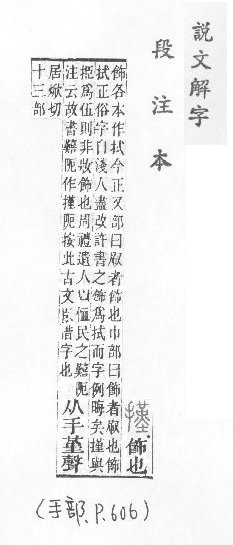 說文解字
段注本
㨷 飾也
飾各本作拭今正又部曰㕞者飾也巾部曰飾者㕞也飾
拭正俗字自淺人盡改許書之飾爲拭而字例晦矣㨷與
挋爲伍則非㕞飾也周禮遺人以恤民之囏阨
注云故書囏阨作㨷阨按此古文叚借字也
从手堇聲
居焮切
十三部
(手部.P.606)